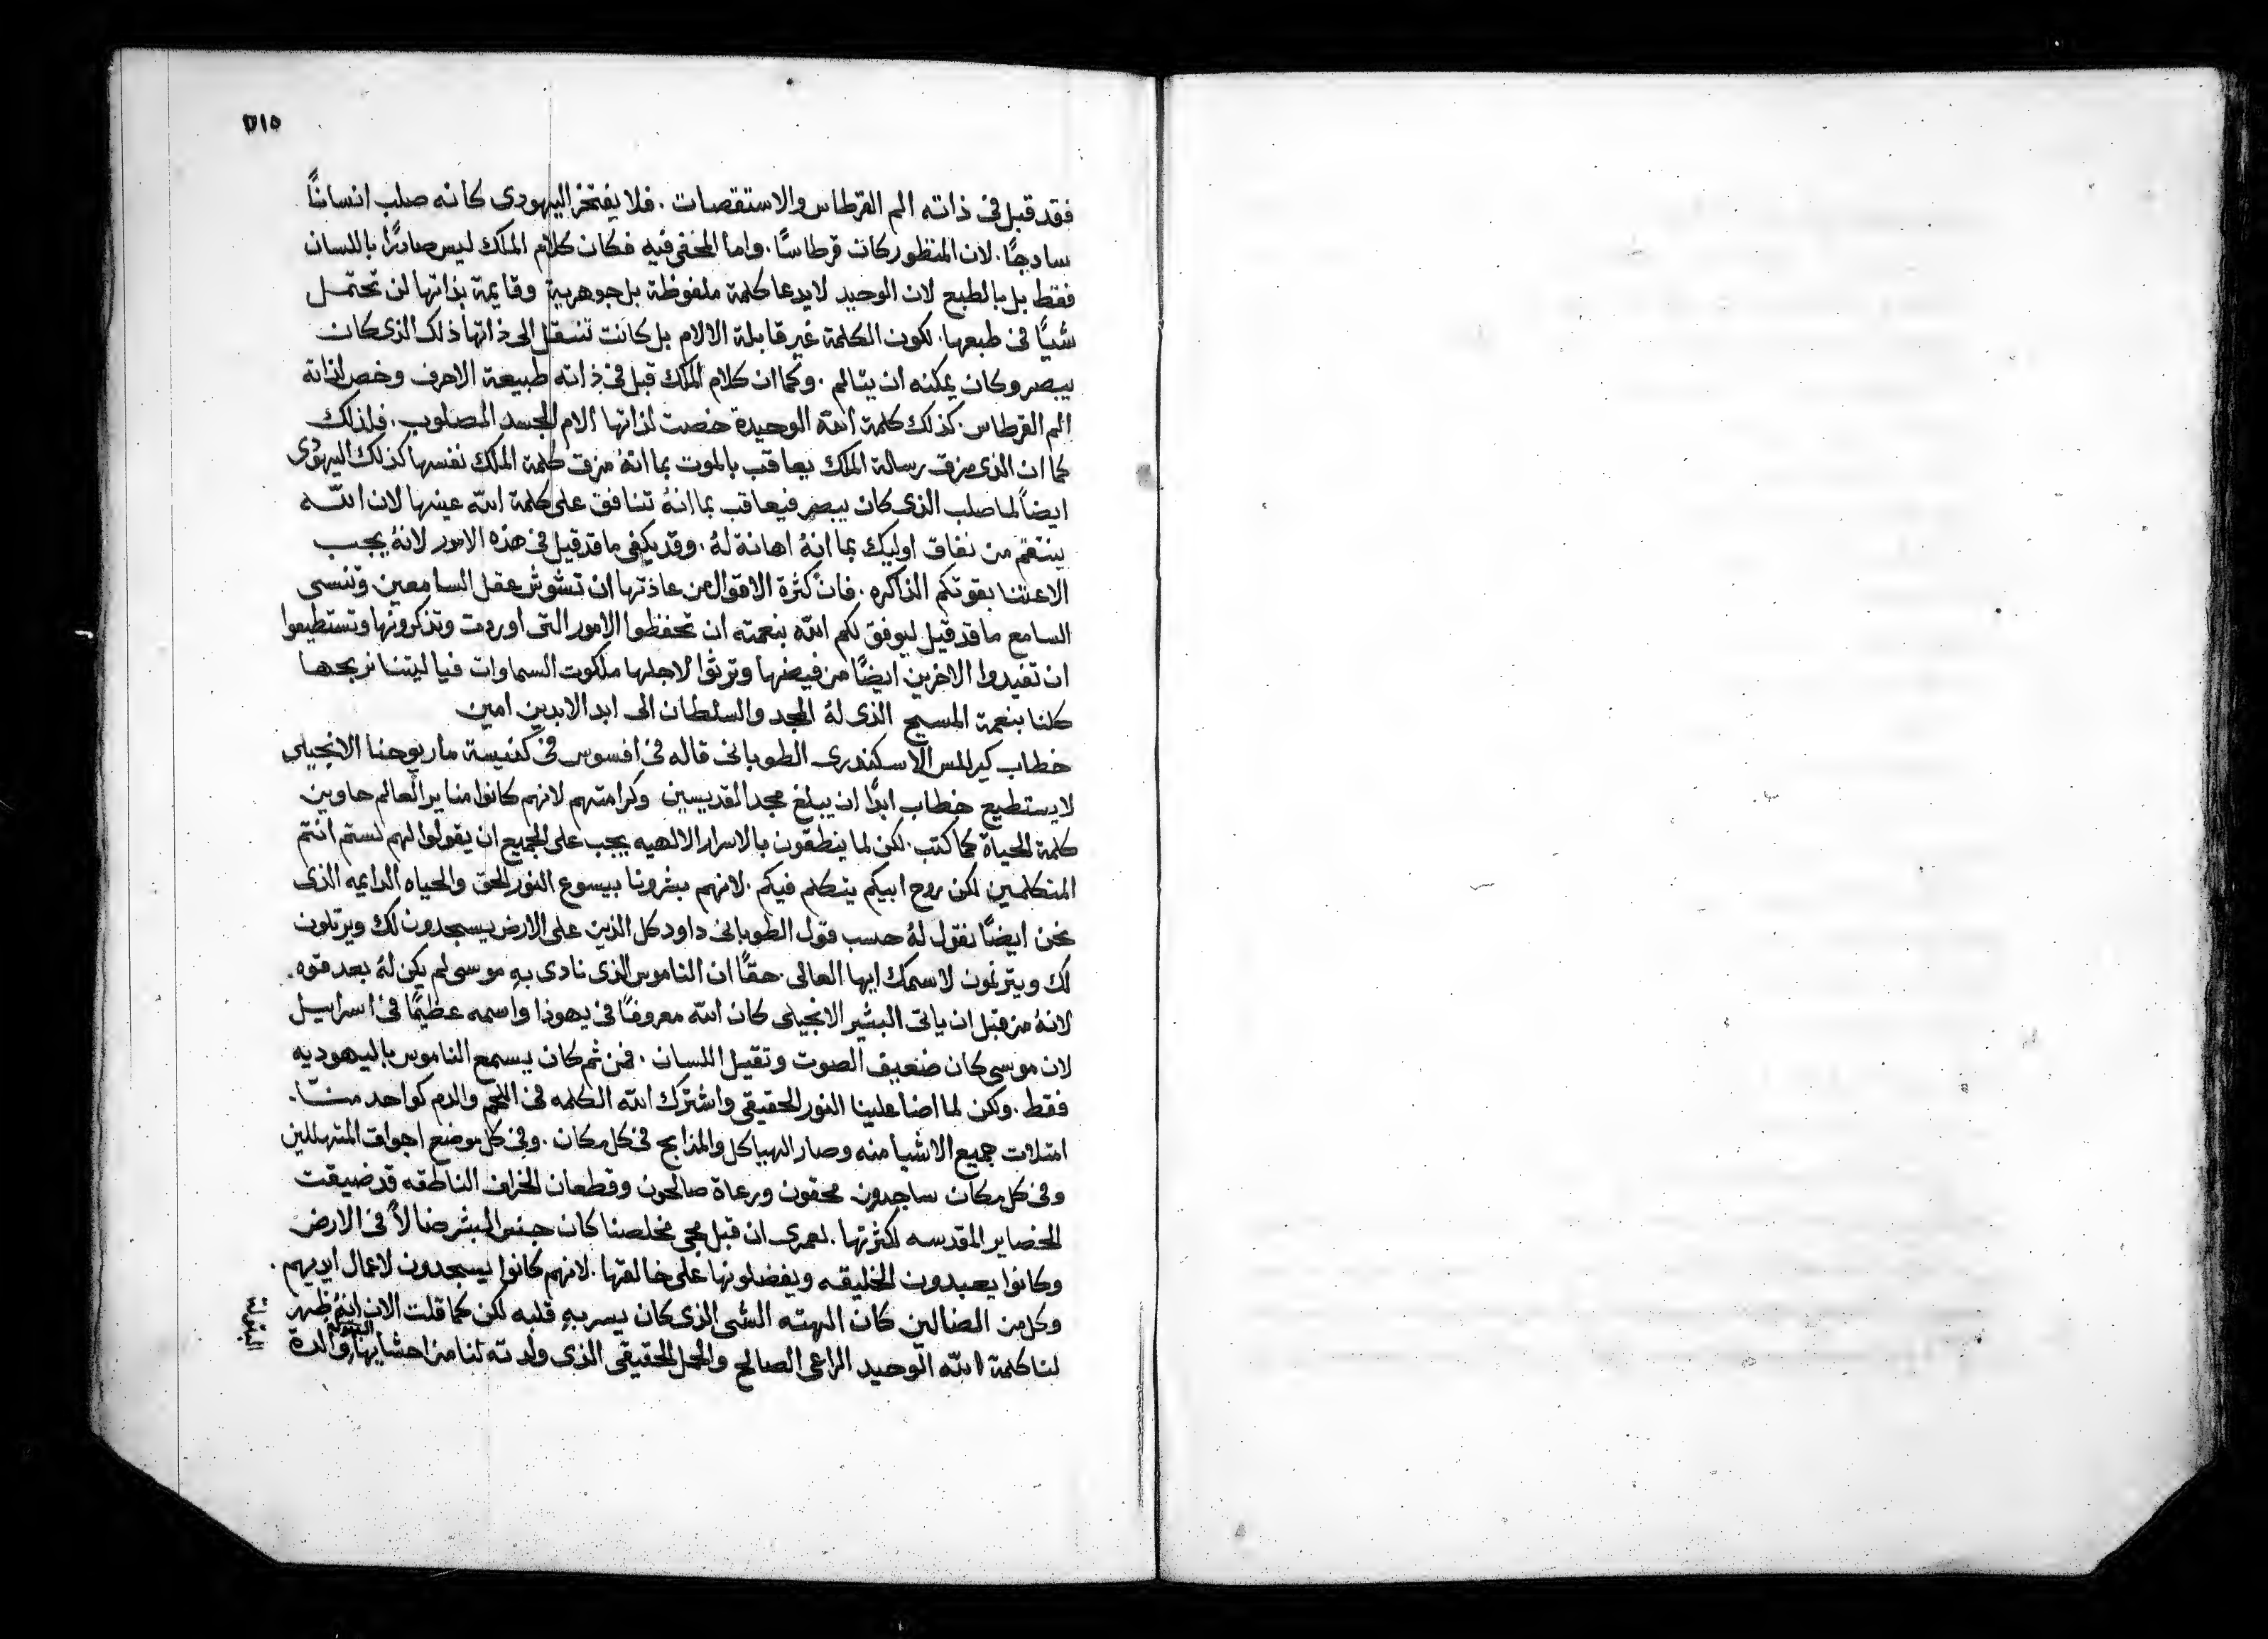 ٥١٥
فقد قبل في ذاته الم القرطاس والاستقصات . فلا يفتخر اليهودى كانه صلب انسانًا
سادجًا . لان المنظور كان قرطاسًا . واما المخفى فيه فكان كلام الملك ليس صادرًا باللسان
فقط بل بالطبع لان الوحيد لا يدعا كلمة ملفوظة بل جوهرية وقايمة بذاتها لن تحتمل
شيًا في طبعها . لكون الكلمة غير قابلة الالام بل كانت تنسقل الى ذاتها ذلك الذى كان
يبصر وكان يمكنه ان يتالم . وكما ان كلام الملك قبل في ذاته طبيعة الاحرف وخص لذاته
الم القرطاس . كذلك كلمة الله الوحيدة خصت لذاتها الام الجسد المصلوب . فلذلك
كما ان الذى مزق رسالة الملك يعاقب بالموت بما انهُ مزق كلمة الملك نفسها كذلك اليهودى
ايضاً لما صلب الذى كان يبصر فيعاقب بما انهُ تنافق على كلمة الله عينها لان الله
ينتقم من نفاق اوليك بما انهُ اهانة لهُ . وقد يكفى ما قد قيل في هذه الامور لانهُ يجب
الاعتنا بقوتكم الذاكره . فان كثرة الاقوال من عاذتها ان تشوش عقل السامعين وتنسى
السامع ما قد قيل ليوفق لكم الله بنعمته ان تحفظوا الامور التى اوردت وتذكرونها وتستطيعوا
ان تفيدوا الاخرين ايضًا من فيضها وترثوا لاجلها ملكوت السماوات فيا ليتنا نربحها
كلنا بنعمة المسيح الذى لهُ المجد والسلطان الى ابد الابدين امين
خطاب كيرللس الاسكندرى الطوبانى قاله في افسوس في كنيسة مار يوحنا الانجيلى
لا يستطيع خطاب ابدًا ان يبلغ مجد القديسين وكرامتهم لانهم كانوا مناير العالم حاوين
كلمة الحياة كما كتب . لكن لما ينطقون بالاسرار الالهيه يجب على الجميع ان يقولوا لهم لستم انتم
المتكلمين لكن روح ابيكم يتكلم فيكم . لانهم بشرونا بيسوع النور الحق والحياه الدايمه الذى
نحن ايضًا نقول لهُ حسب قول الطوبانى داود كل الذين على الارض يسجدون لك ويرتلون
لك ويترنمون لاسمك ايها العالى . حقًا ان الناموس الذى نادى بهِ موسى لم يكن لهُ بعد قوه .
لانهُ من قبل ان ياتى البشير الانجيلى كان الله معروفًا في يهوذا واسمه عظيمًا في اسراييل
لان موسى كان ضعيف الصوت وثقيل اللسان . فمن ثم كان يسمع الناموس باليهوديه
فقط . ولكن لما اضا علينا النور الحقيقى واشترك الله الكلمه في اللحم والدم كواحد منّا .
امتلات جميع الاشيا منه وصار الهياكل والمذابح في كل مكان . وفي كل موضع اجواق المتهللين
وفي كل مكان ساجدون محقون ورعاة صالحون وقطعان الخراف الناطقه قد ضيقت
الحضاير المقدسه لكثرتها . لعمرى ان قبل مجى مخلصنا كان جنس البشر ضالاً في الارض
وكانوا يعبدون الخليقه ويفضلونها على خالقها . لانهم كانوا يسجدون لاعمال ايديهم .
وكل من الضالين كان الهته الشى الذى كان يسر بهِ قلبه لكن كما قلت الان انهُ ظهر
لنا كلمة الله الوحيد الراعى الصالح والحمل الحقيقى الذى ولدته لنا من احشايها البتول والدة